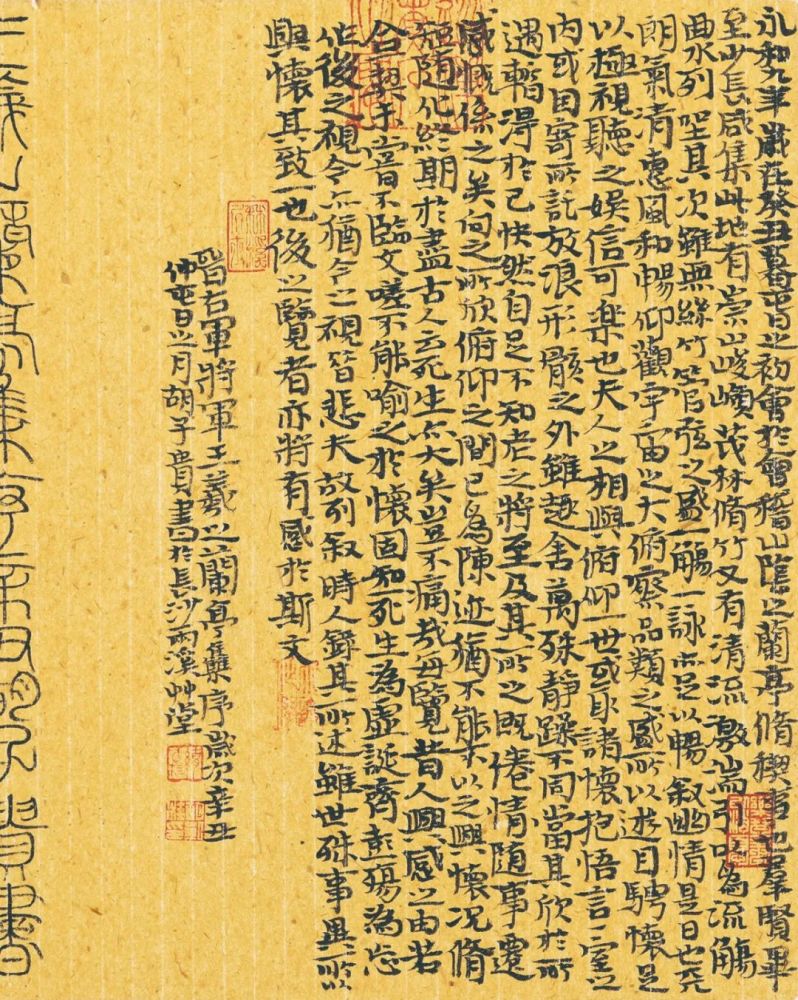 永和九年歲在癸丑暮春之初會於會稽山陰之蘭亭脩禊事也羣賢畢
至少長咸集此地有崇山峻嶺茂林脩竹又有清流激湍引以為流觴
曲水列坐其次雖無絲竹管弦之盛一觴一詠亦足以暢敘幽情是日也天
朗氣清惠風和暢仰觀宇宙之大俯察品類之盛所以遊目騁懷足
以極視聽之娛信可樂也夫人之相與俯仰一世或取諸懷抱悟言一室之
內或因寄所託放浪形骸之外雖趣舍萬殊靜躁不同當其欣於所
遇暫得於己快然自足不知老之將至及其所之既倦情隨事遷
感慨係之矣向之所欣俯仰之間已為陳迹猶不能不以之興懷況脩
短隨化終期於盡古人云死生亦大矣豈不痛哉每覽昔人興感之由若
合契未嘗不臨文嗟不能喻之於懷固知一死生為虛誕齊彭殤為妄
作後之視今亦猶今之視昔悲夫故列敘時人錄其所述雖世殊事異所以
興懷其致一也後之覽者亦將有感於斯文
晉右軍將軍王羲之蘭亭集序歲次辛丑
仲春日之月胡子貴書於長沙兩溪艸堂
王羲之蘭亭集序辛丑胡子貴書